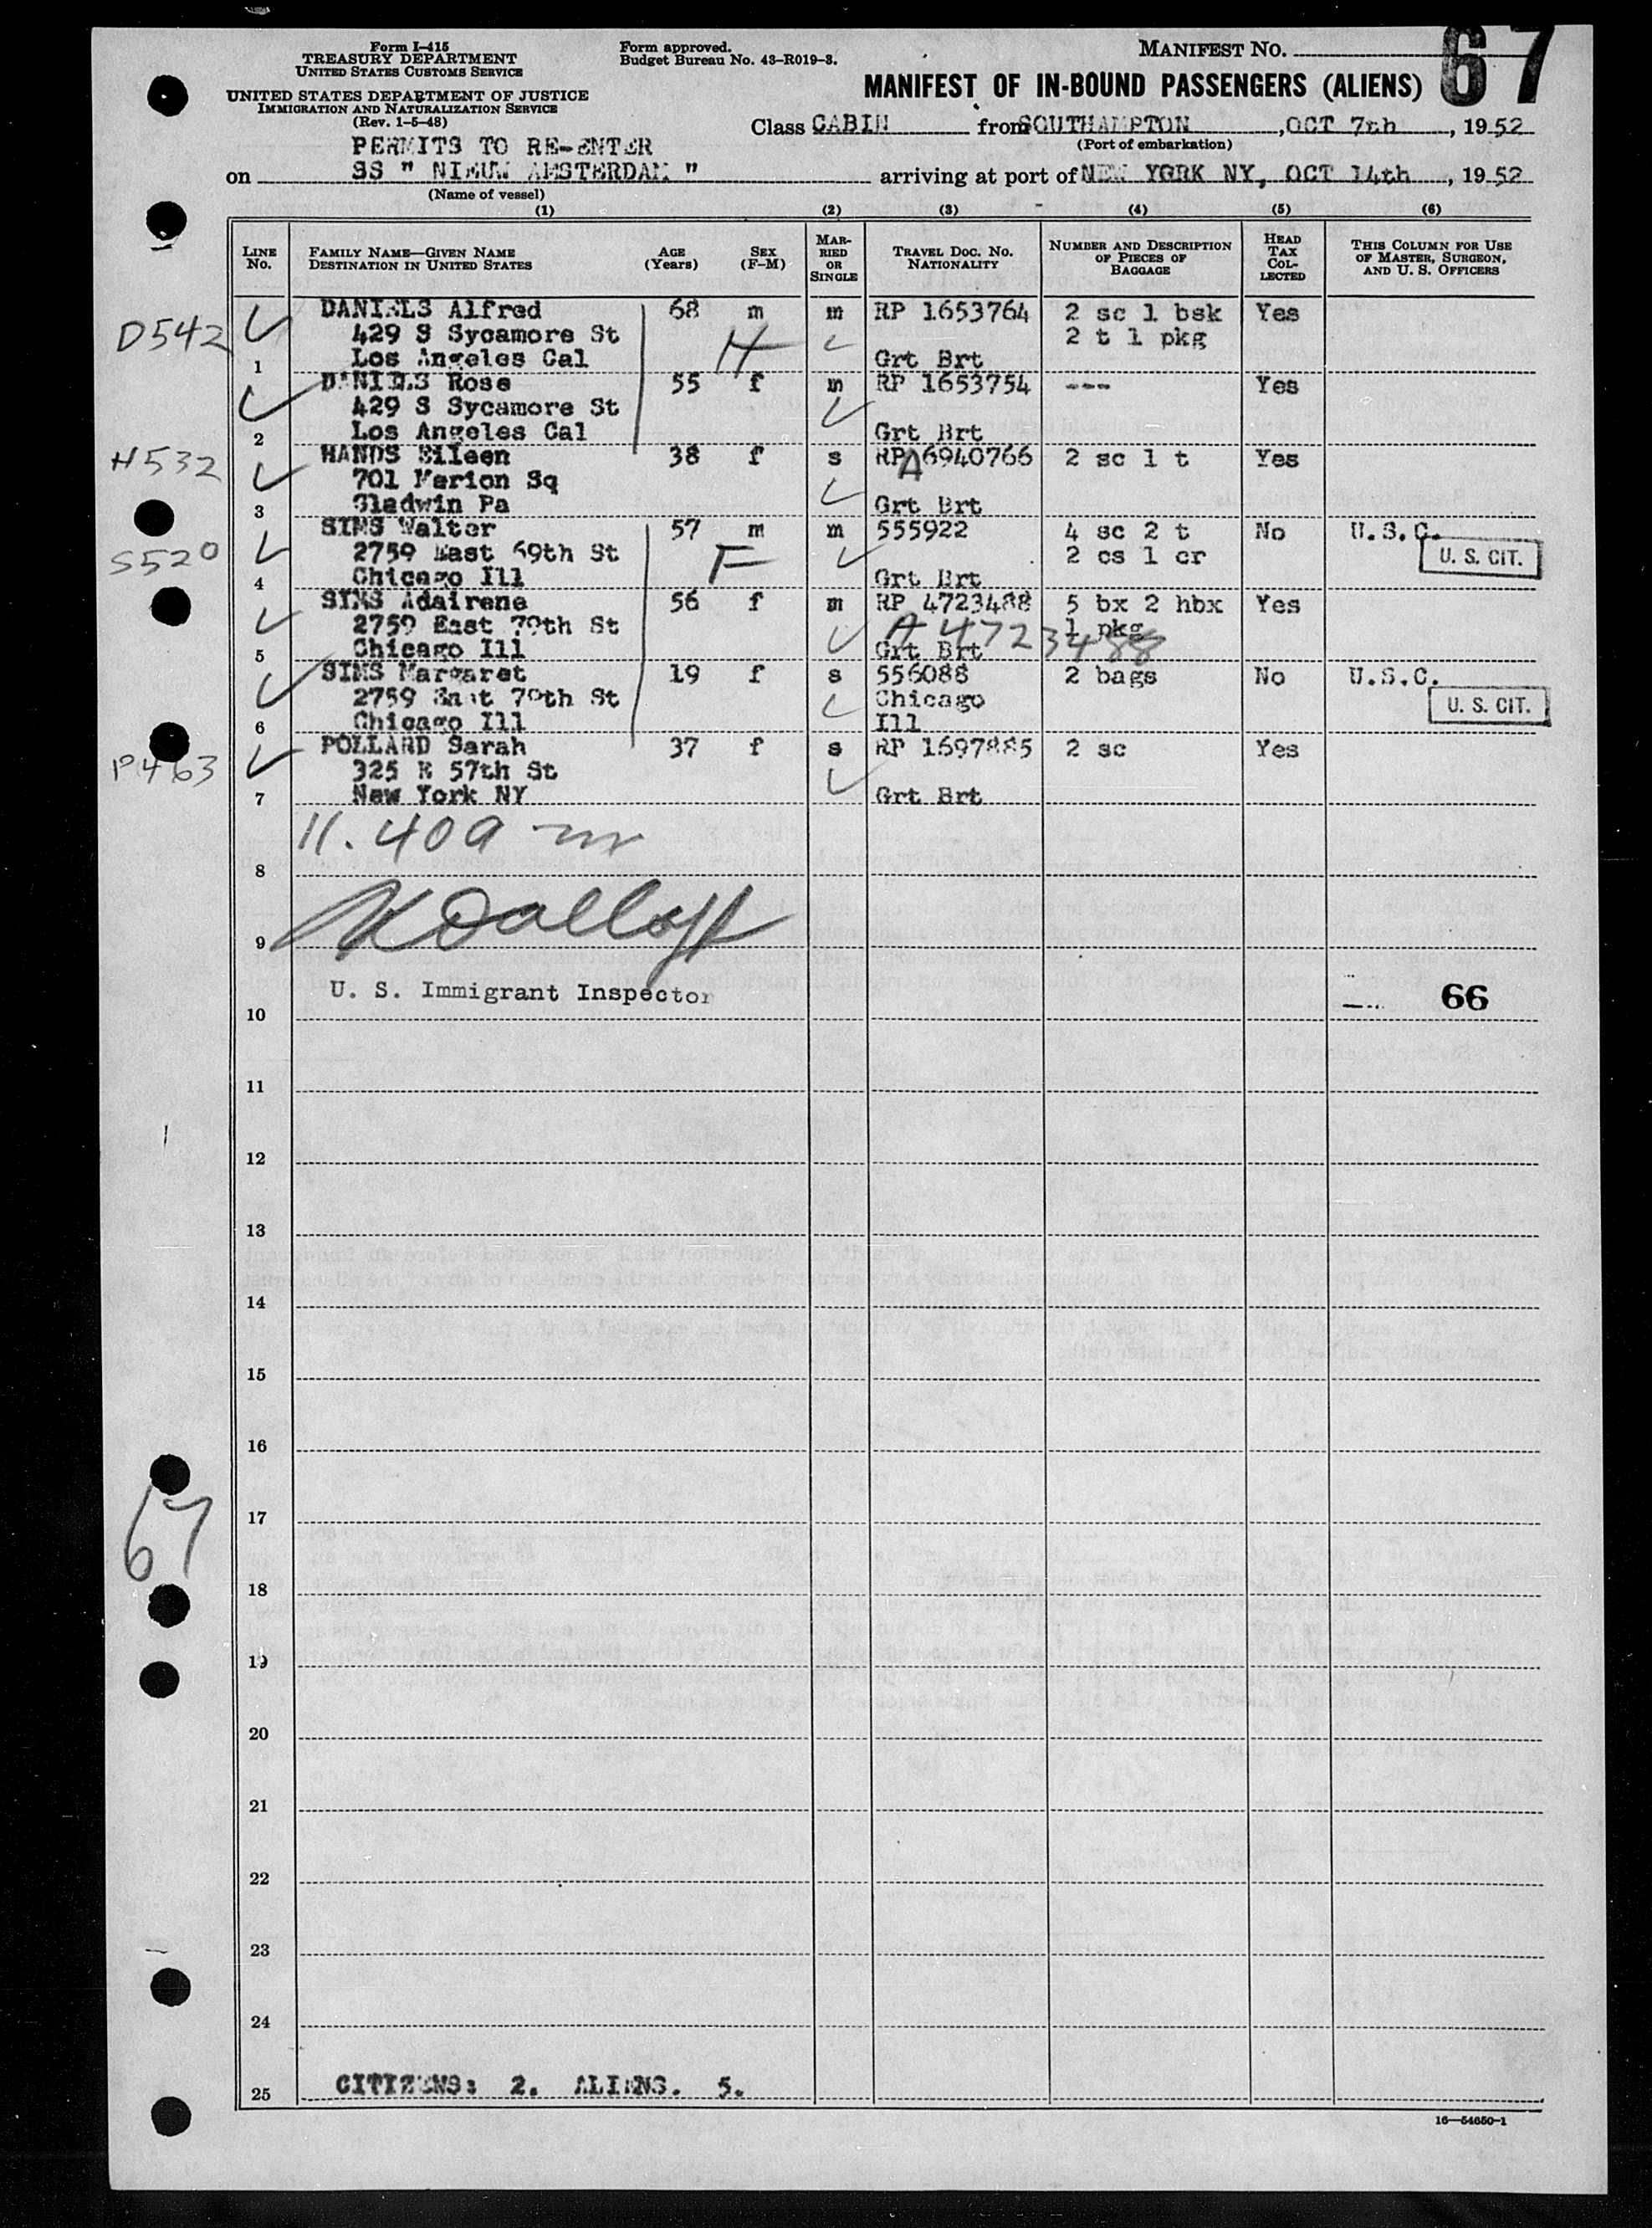 Form I-415
TREASURY DEPARTMENT
UNITED STATES CUSTOMS SERVICE
UNITED STATES DEPARTMENT OF JUSTICE
IMMIGRATION AND NATURALIZATION SERVICE
(Rev. 1-5-48)
Form approved.
Budget Bureau No. 43-R019-3.
MANIFEST NO. 67
MANIFEST OF IN-BOUND PASSENGERS (ALIENS)
Class CABIN from SOUTHAMPTON, OCT 7th, 1952
(Port of embarkation)
PERMITS TO RE-ENTER
on SS " NIEUW AMSTERDAM " arriving at port of NEW YORK NY, OCT 14th, 1952
(Name of vessel)
(1) (2) (3) (4) (5) (6)
LINE NO.
FAMILY NAME—GIVEN NAME
DESTINATION IN UNITED STATES
AGE (Years)
SEX (F-M)
MARRIED OR SINGLE
TRAVEL DOC. NO. NATIONALITY
NUMBER AND DESCRIPTION OF PIECES OF BAGGAGE
HEAD TAX COLLECTED
THIS COLUMN FOR USE OF MASTER, SURGEON, AND U. S. OFFICERS
DANIELS Alfred 68 m m RP 1653764 2 sc 1 bsk Yes
D542 429 S Sycamore St H 2 t 1 pkg
1 Los Angeles Cal Grt Brt
DANIELS Rose 55 f m RP 1653754 --- Yes
429 S Sycamore St
2 Los Angeles Cal Grt Brt
H532 HANDS Eileen 38 f s RP A 6940766 2 sc 1 t Yes
701 Merion Sq
3 Gladwin Pa Grt Brt
SIMS Walter 57 m m 555922 4 sc 2 t No U.S.C.
S520 2759 East 69th St F 2 cs 1 cr U. S. CIT.
4 Chicago Ill Grt Brt
SIMS Adairene 56 f m RP 4723488 5 bx 2 hbx Yes
2759 East 79th St A 4723488 1 pkg
5 Chicago Ill Grt Brt
SIMS Margaret 19 f s 556088 2 bags No U.S.C.
2759 East 79th St Chicago U. S. CIT.
6 Chicago Ill Ill
POLLARD Sarah 37 f s RP 1697885 2 sc Yes
P463 325 E 57th St
7 New York NY Grt Brt
11.40a m
8
9
U. S. Immigrant Inspector 66
10
11
12
13
14
15
16
17
67
18
19
20
21
22
23
24
25 CITIZENS: 2. ALIENS. 5.
16—54650-1